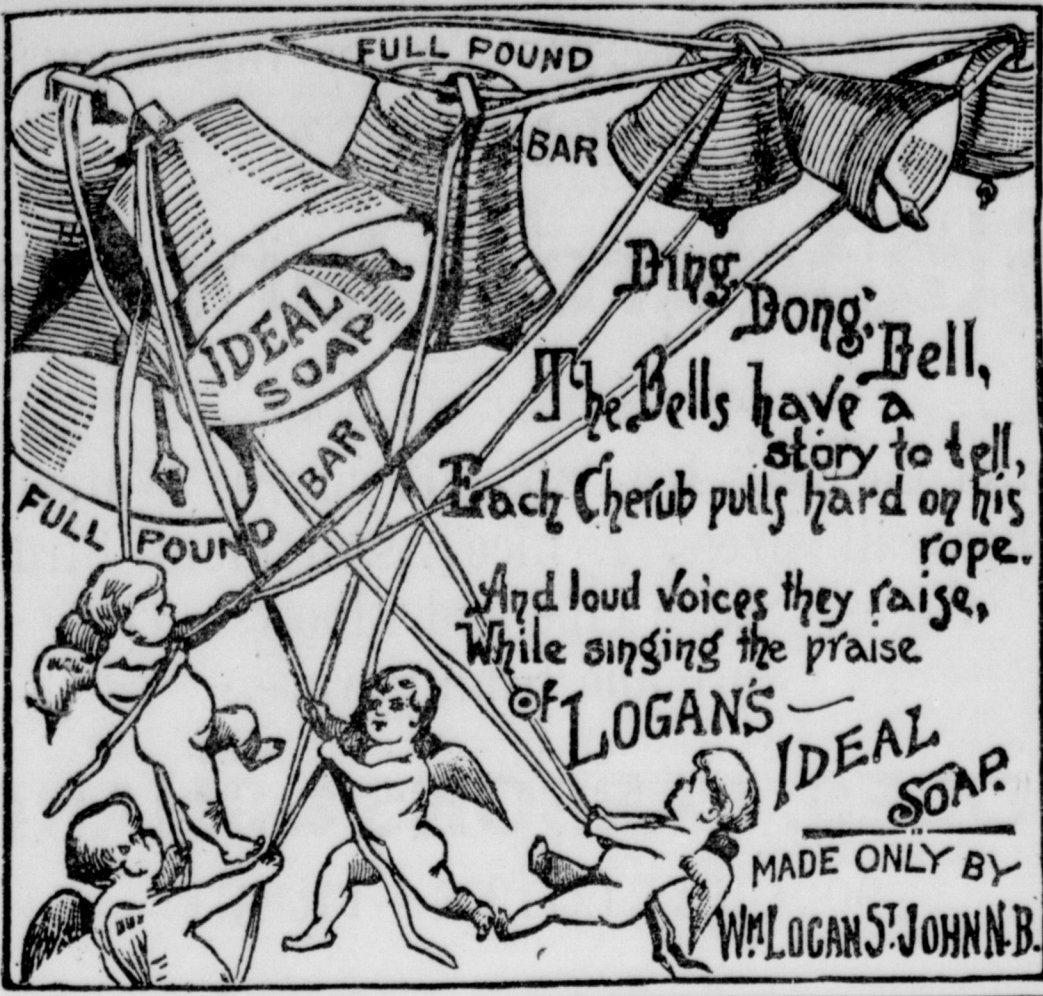 FULL POUND
BAR
IDEAL
SOAP
BAR
FULL POUND
Ding,
Dong,
Bell,
The Bells have a
story to tell,
Each Cherub pulls hard on his
rope.
And loud voices they raise,
While singing the praise
OF LOGAN'S—
IDEAL
SOAP.
MADE ONLY BY
WM LOGAN ST. JOHN N.B.